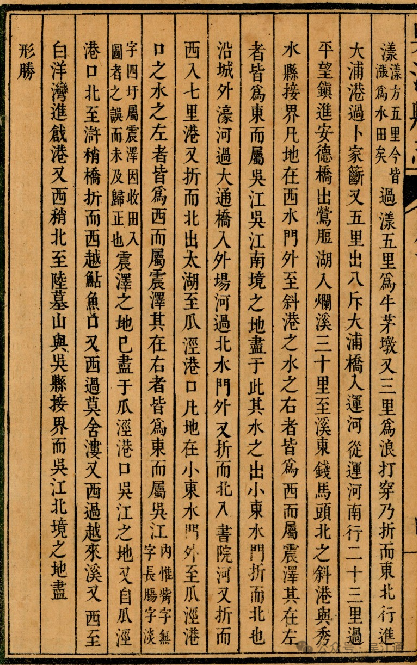 漾漾方五里今皆淺爲水田矣過漾五里爲牛茅墩又三里爲浪打穿乃折而東北行進
大浦港過卜家籪又五里出八斥大浦橋入運河從運河南行二十三里過
平望鎮進安德橋出鶯脰湖入爛溪三十里至溪東錢馬頭北之斜港與秀
水縣接界凡地在西水門外至斜港之水之右者皆爲西而屬震澤其在左
者皆爲東而屬吳江吳江南境之地盡于此其水之出小東水門折而北也
沿城外濠河過大通橋入外塲河過北水門外又折而北入書院河又折而
西入七里港又折而北出太湖至瓜涇港口凡地在小東水門外至瓜涇港
口之水之左者皆爲西而屬震澤其在右者皆爲東而屬吳江內惟嘴字無字長腸字淡
字四圩屬震澤因收田入圖者之誤而未及歸正也震澤之地已盡于瓜涇港口吳江之地又自瓜涇
港口北至滸稍橋折而西越鮎魚口又西過莫舍漊又西過越來溪又西至
白洋灣進戧港又西稍北至陸墓山與吳縣接界而吳江北境之地盡
形勝